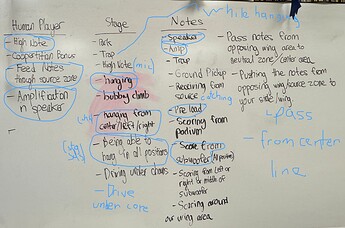 while hanging
Human Player
- High Note
- Coopertition Bonus
- Feed Notes
through source zone
- Amplification
n speaker
-
Stage
- Park
- Trap
- High Note (mic)
- hanging
- buddy climb
- hanging from
center/left/right
- Being able to
hang in all positions
- Driving under chains
- Drive
under core
Notes
- Speaker
- Amp
- Trap
- Ground Pickup
- Receiving from
source
- Pre load
- Scoring from
podium
- Score from
subwoofer (All positions)
- Scoring from left or
right or middle of
subwoofer
- Scoring around
our wing area
- Pass notes from
opposing wing area to
neutral zone/center area
- Pushing the notes from
opposing wing/source zone to
your side/wing
pass
- from center
line